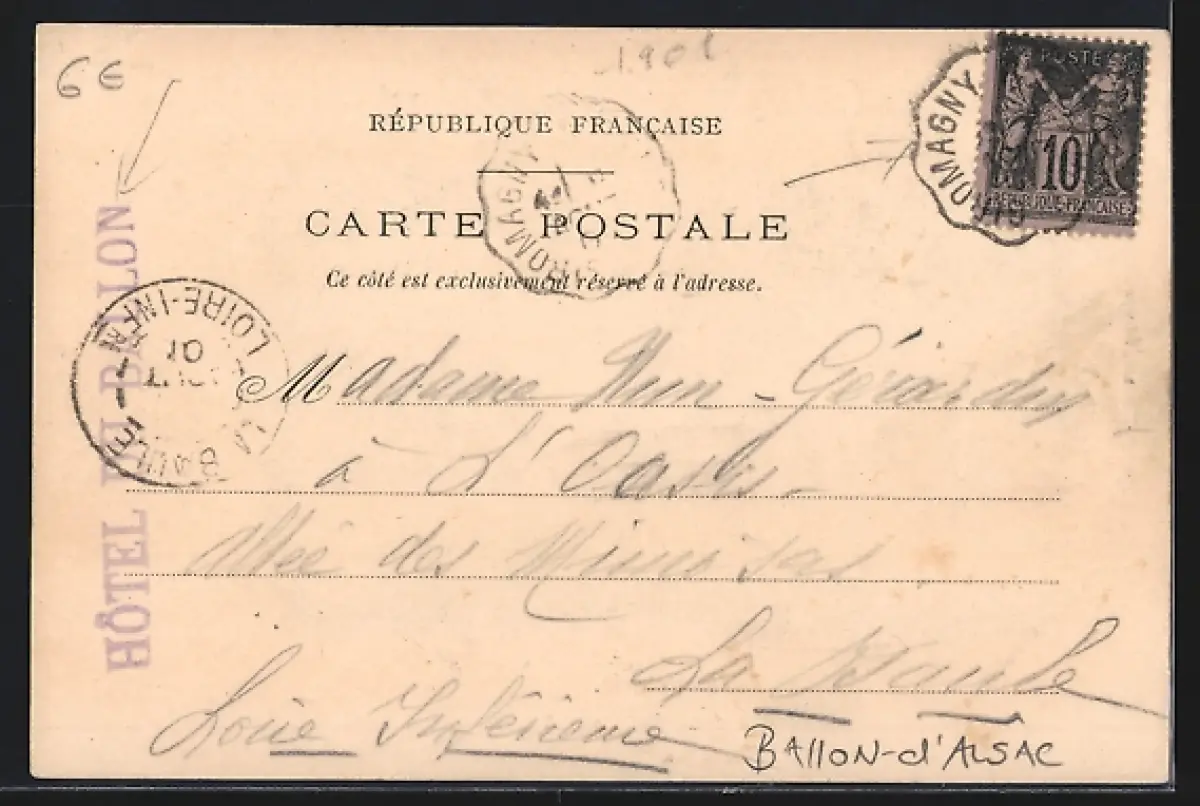 6 €
1901
RÉPUBLIQUE FRANÇAISE
CARTE POSTALE
Ce côté est exclusivement réservé à l'adresse.
POSTES
10
REPUBLIQUE FRANÇAISE
GIROMAGNY
GIROMAGNY
HÔTEL DU BALLON
LA BAULE LOIRE-INFRE
AOUT
01
Madame
à L'Oasis
Allée des Mimosas
La Baule
Loire Inférieure
BAllON-d'AlSAC